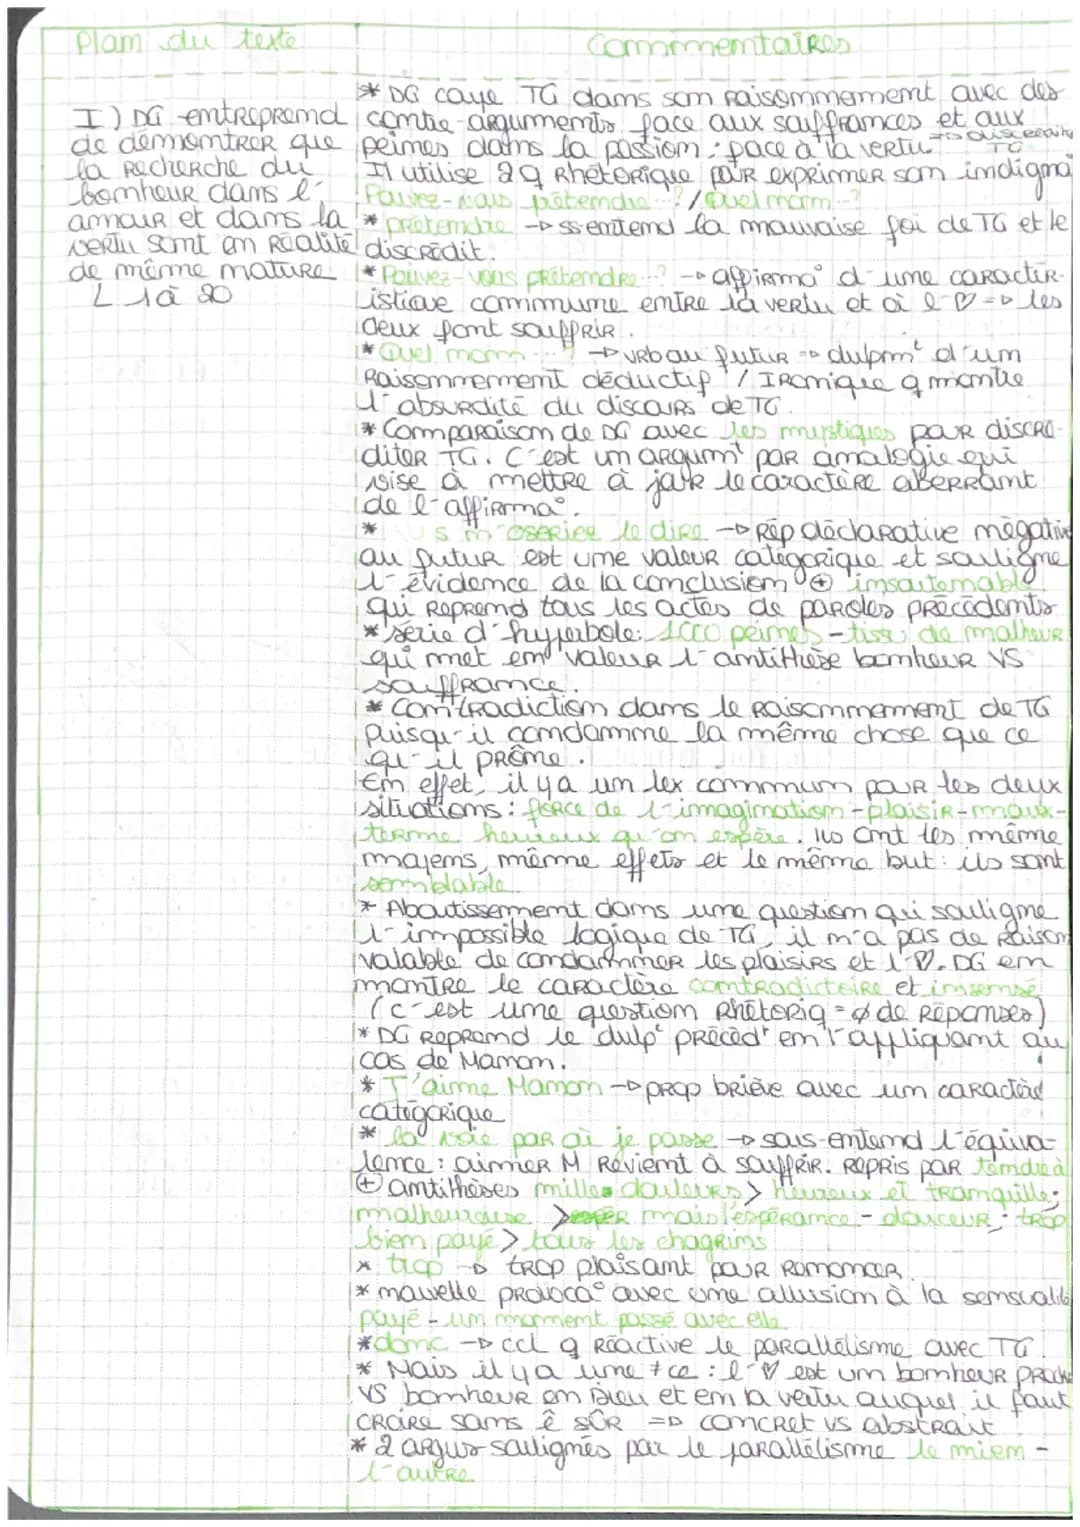 Plan du texte
Commentaires
I) DG entreprend
de démontrer que
la recherche du
bonheur dans l'
amour et dans la
vertu sont en réalité
de même nature
L 1 à 20
* DG caye TG dans son raisonnement avec des
contre-arguments face aux souffrances et aux
peines dans la passion : face à la vertu
Il utilise 2 q Rhétorique pour exprimer son indigna
Pouvez-vous prétendre...? / Quel nom...?
* prétendre → ss entend la mauvaise foi de TG et le
discrédit.
* Pouvez-vous prétendre...? → affirma° d'une caractér-
istique commune entre la vertu et où l'♡ => les
deux font souffrir.
* Quel nom ...? → vrb au futur → dvlpmt d'un
Raisonnement déductif / Ironique q montre
l'absurdité du discours de TG.
* Comparaison de DG avec les mystiques pour discré-
diter TG. C'est un argumt par analogie qui
vise à mettre à jour le caractère aberrant
de l'affirma°.
* s n'oseriez le dire → Rép déclarative négative
au futur est une valeur catégorique et souligne
l'évidence de la conclusion ⊕ insoutenable
qui reprend tous les actes de paroles précédents
* série d'hyperbole: 1000 peines - tissu de malheur
qui met en valeur l'antithèse bonheur VS
souffrance.
* Contradiction dans le raisonnement de TG
puisqu'il condamne la même chose que ce
qu'il prône.
En effet, il y a un lex commun pour les deux
situations : force de l'imagination - plaisir - maux -
terme heureux qu'on espère. Ils ont les même
moyens, même effets et le même but : ils sont
semblable.
* Aboutissement dans une question qui souligne
l'impossible logique de TG, il n'a pas de raison
valable de condamner les plaisirs et l'♡. DG en
montre le caractère contradictoire et insensé
(c'est une question rhétoriq = ø de réponses)
* DG reprend le dvlpt précédt en l'appliquant au
cas de Manon.
* J'aime Manon → prop brière avec un caractère
catégorique
* la voie par où je passe → sous-entend l'équiva-
lence : aimer M revient à souffrir. Repris par tendre à
⊕ antithèses mille douleurs > heureux et tranquille;
malheureuse > mais l'espérance - douceur; trop
bien payé > tous les chagrins
* trop → trop plaisant pour romancer.
* nouvelle provoca° avec une allusion à la sensualité
payé - un moment passé avec elle
* donc → ccl q réactive le parallélisme avec TG.
* Mais il y a une ≠ce : l'♡ est un bonheur proche
VS bonheur en Dieu et en la vertu auquel il faut
croire sans ê sûr => concret vs abstrait
* 2 argus soulignés par le parallélisme le mien -
l'autre